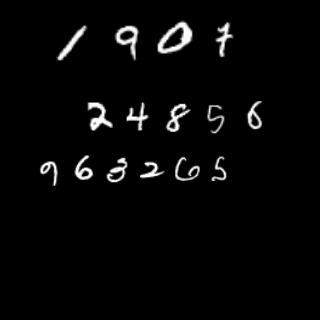 1907
24856
963265